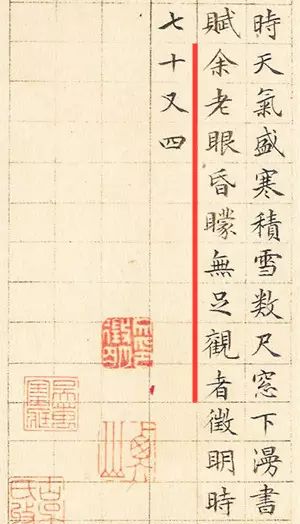 時天氣盛寒積雪数尺窓下漫書
賦余老眼昏矇無足觀者徵明時
七十又四